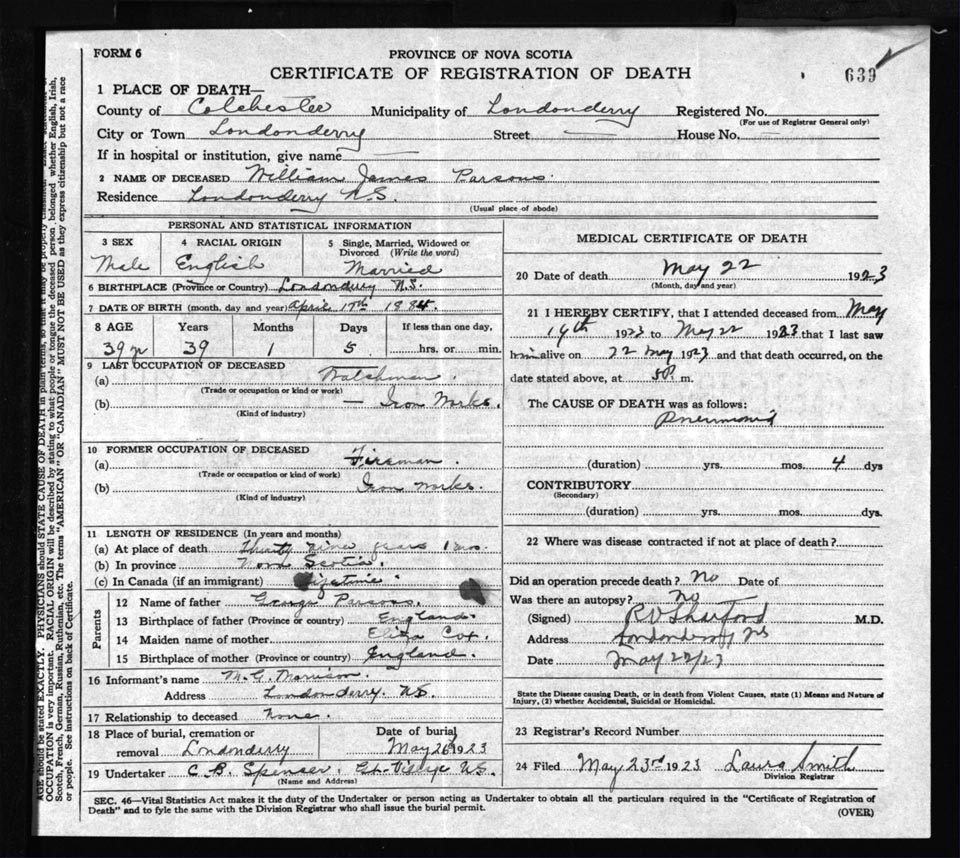 FORM 6
PROVINCE OF NOVA SCOTIA
CERTIFICATE OF REGISTRATION OF DEATH
639
1 PLACE OF DEATH—
County of Colchester Municipality of Londonderry Registered No.
(For use of Registrar General only)
City or Town Londonderry Street — House No. —
If in hospital or institution, give name —
2 NAME OF DECEASED William James Parsons.
Residence Londonderry N.S.
(Usual place of abode)
PERSONAL AND STATISTICAL INFORMATION
3 SEX Male
4 RACIAL ORIGIN English
5 Single, Married, Widowed or Divorced (Write the word) Married
6 BIRTHPLACE (Province or Country) Londonderry N.S.
7 DATE OF BIRTH (month, day and year) April 17th 1884.
8 AGE Years Months Days If less than one day,
39 39 1 5 hrs. or min.
9 LAST OCCUPATION OF DECEASED
(a) Watchman.
(Trade or occupation or kind or work)
(b) — Iron Works.
(Kind of industry)
10 FORMER OCCUPATION OF DECEASED
(a) Fireman.
(Trade or occupation or kind of work)
(b) Iron works.
(Kind of industry)
11 LENGTH OF RESIDENCE (In years and months)
(a) At place of death Thirty nine years 1 mo.
(b) In province Nova Scotia.
(c) In Canada (if an immigrant) Lifetime
Parents
12 Name of father George Parsons.
13 Birthplace of father (Province or country) England.
14 Maiden name of mother Eliza Cox.
15 Birthplace of mother (Province or country) England.
16 Informant's name M. G. Morrison.
Address Londonderry. N.S.
17 Relationship to deceased None.
18 Place of burial, cremation or removal Londonderry
Date of burial May 26 1923
19 Undertaker C. B. Spencer, Gt. Village N.S.
(Name and Address)
MEDICAL CERTIFICATE OF DEATH
20 Date of death May 22 1923
(Month, day and year)
21 I HEREBY CERTIFY, that I attended deceased from May
19th 1923 to May 22 1923 that I last saw
him alive on 22 May 1923 and that death occurred, on the
date stated above, at 5P m.
The CAUSE OF DEATH was as follows:
Pneumonia
(duration) yrs. mos. 4 dys
CONTRIBUTORY
(Secondary)
(duration) yrs. mos. dys.
22 Where was disease contracted if not at place of death?
Did an operation precede death? No Date of
Was there an autopsy? No
(Signed) M.D.
Address Londonderry NS
Date May 22/23
State the Disease causing Death, or in death from Violent Causes, state (1) Means and Nature of
Injury, (2) whether Accidental, Suicidal or Homicidal.
23 Registrar's Record Number
24 Filed May 23rd 1923 Laura Smith
Division Registrar
SEC. 46—Vital Statistics Act makes it the duty of the Undertaker or person acting as Undertaker to obtain all the particulars required in the "Certificate of Registration of
Death" and to fyle the same with the Division Registrar who shall issue the burial permit.
(OVER)
AGE should be stated EXACTLY. PHYSICIANS should STATE CAUSE OF DEATH in plain terms, so that it may be properly
OCCUPATION is very important. RACIAL ORIGIN will be described by stating to what people or tongue the deceased person belonged whether English, Irish,
Scotch, French, German, Russian, Ruthenian, etc. The terms "AMERICAN" OR "CANADIAN" MUST NOT BE USED as they express citizenship but not a race
or people. See instructions on back of Certificate.